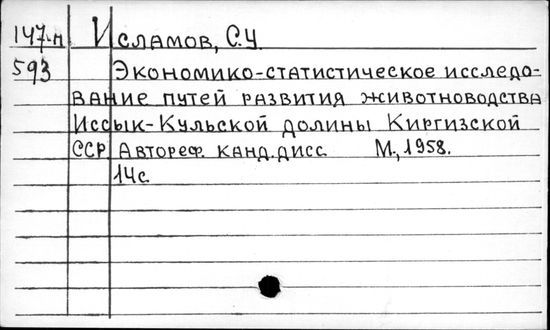 147-н Исламов, С.У.
593 Экономико-статистическое исследо-
вание путей развития животноводства
Иссык-Кульской долины Киргизской
ССР Автореф. канд. дисс. М., 1958.
14с.